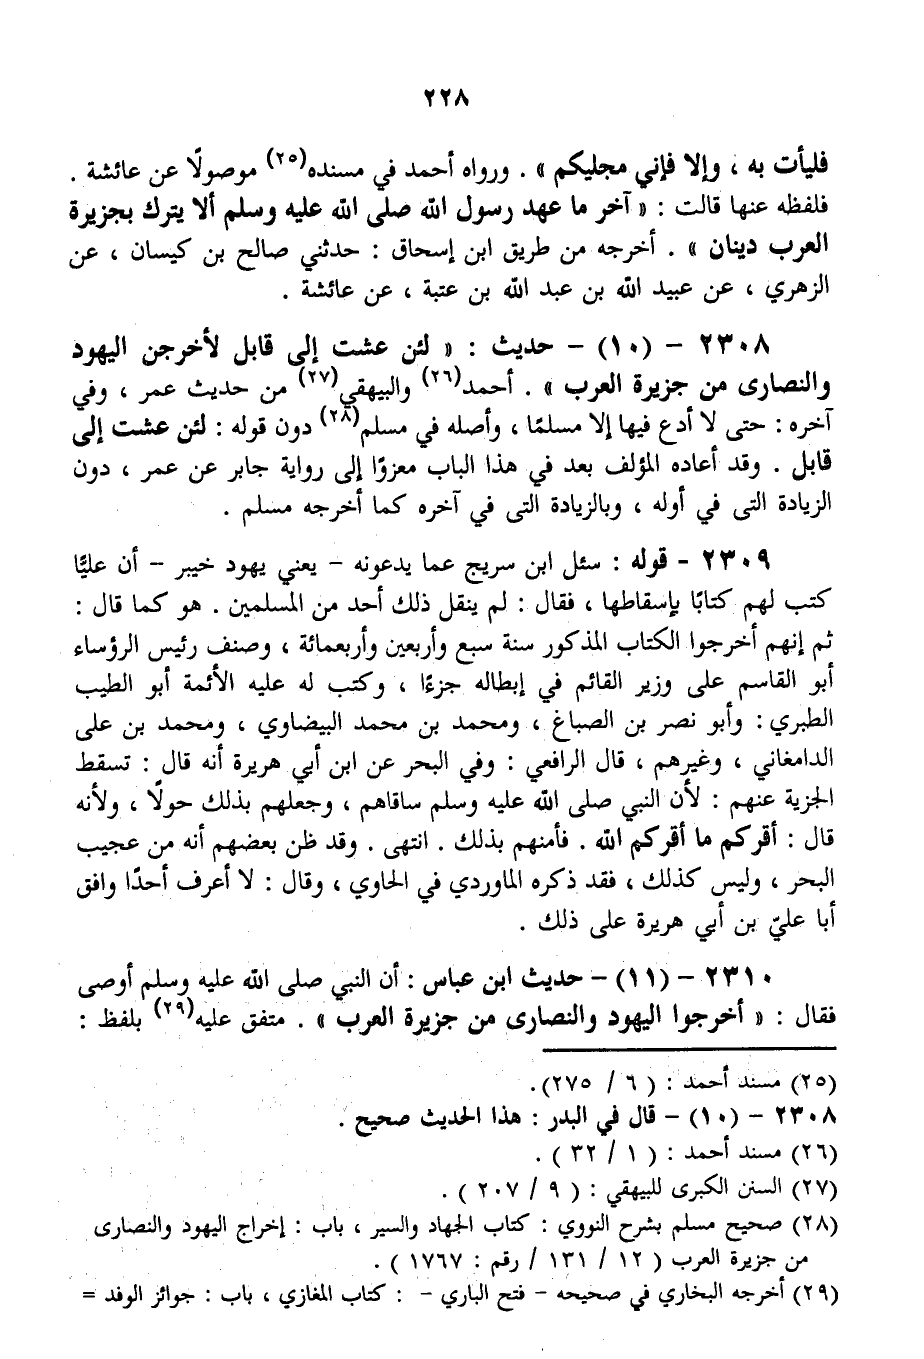 ٢٢٨
فليأت به ، وإلا فإني مجليكم » . ورواه أحمد في مسنده(٢٥) موصولًا عن عائشة .
فلفظه عنها قالت : « آخر ما عهد رسول الله صلى الله عليه وسلم ألا يترك بجزيرة
العرب دينان » . أخرجه من طريق ابن إسحاق : حدثني صالح بن كيسان ، عن
الزهري ، عن عبيد الله بن عبد الله بن عتبة ، عن عائشة .
٢٣٠٨ – (١٠) – حديث : « لئن عشت إلى قابل لأخرجن اليهود
والنصارى من جزيرة العرب » . أحمد(٢٦) والبيهقي(٢٧) من حديث عمر ، وفي
آخره : حتى لا أدع فيها إلا مسلمًا ، وأصله في مسلم(٢٨) دون قوله : لئن عشت إلى
قابل . وقد أعاده المؤلف بعد في هذا الباب معزوًا إلى رواية جابر عن عمر ، دون
الزيادة التى في أوله ، وبالزيادة التى في آخره كما أخرجه مسلم .
٢٣٠٩ - قوله : سئل ابن سريج عما يدعونه – يعني يهود خيبر – أن عليًّا
كتب لهم كتابًا بإسقاطها ، فقال : لم ينقل ذلك أحد من المسلمين . هو كما قال :
ثم إنهم أخرجوا الكتاب المذكور سنة سبع وأربعين وأربعمائة ، وصنف رئيس الرؤساء
أبو القاسم على وزير القائم في إبطاله جزءًا ، وكتب له عليه الأئمة أبو الطيب
الطبري : وأبو نصر بن الصباغ ، ومحمد بن محمد البيضاوي ، ومحمد بن على
الدامغاني ، وغيرهم ، قال الرافعي : وفي البحر عن ابن أبي هريرة أنه قال : تسقط
الجزية عنهم : لأن النبي صلى الله عليه وسلم ساقاهم ، وجعلهم بذلك حولًا ، ولأنه
قال : أقركم ما أقركم الله . فأمنهم بذلك . انتهى . وقد ظن بعضهم أنه من عجيب
البحر ، وليس كذلك ، فقد ذكره الماوردي في الحاوي ، وقال : لا أعرف أحدًا وافق
أبا عليّ بن أبي هريرة على ذلك .
٢٣١٠ – (١١) – حديث ابن عباس : أن النبي صلى الله عليه وسلم أوصى
فقال : « أخرجوا اليهود والنصارى من جزيرة العرب » . متفق عليه(٢٩) بلفظ :
(٢٥) مسند أحمد : ( ٦ / ٢٧٥).
٢٣٠٨ – (١٠) – قال في البدر : هذا الحديث صحيح .
(٢٦) مسند أحمد : ( ١ / ٣٢ ) .
(٢٧) السنن الكبرى للبيهقي : ( ٩ / ٢٠٧ ) .
(٢٨) صحيح مسلم بشرح النووي : كتاب الجهاد والسير ، باب : إخراج اليهود والنصارى
من جزيرة العرب ( ١٢ / ١٣١ / رقم : ١٧٦٧ ) .
(٢٩) أخرجه البخاري في صحيحه – فتح الباري – : كتاب المغازي ، باب : جوائز الوفد =